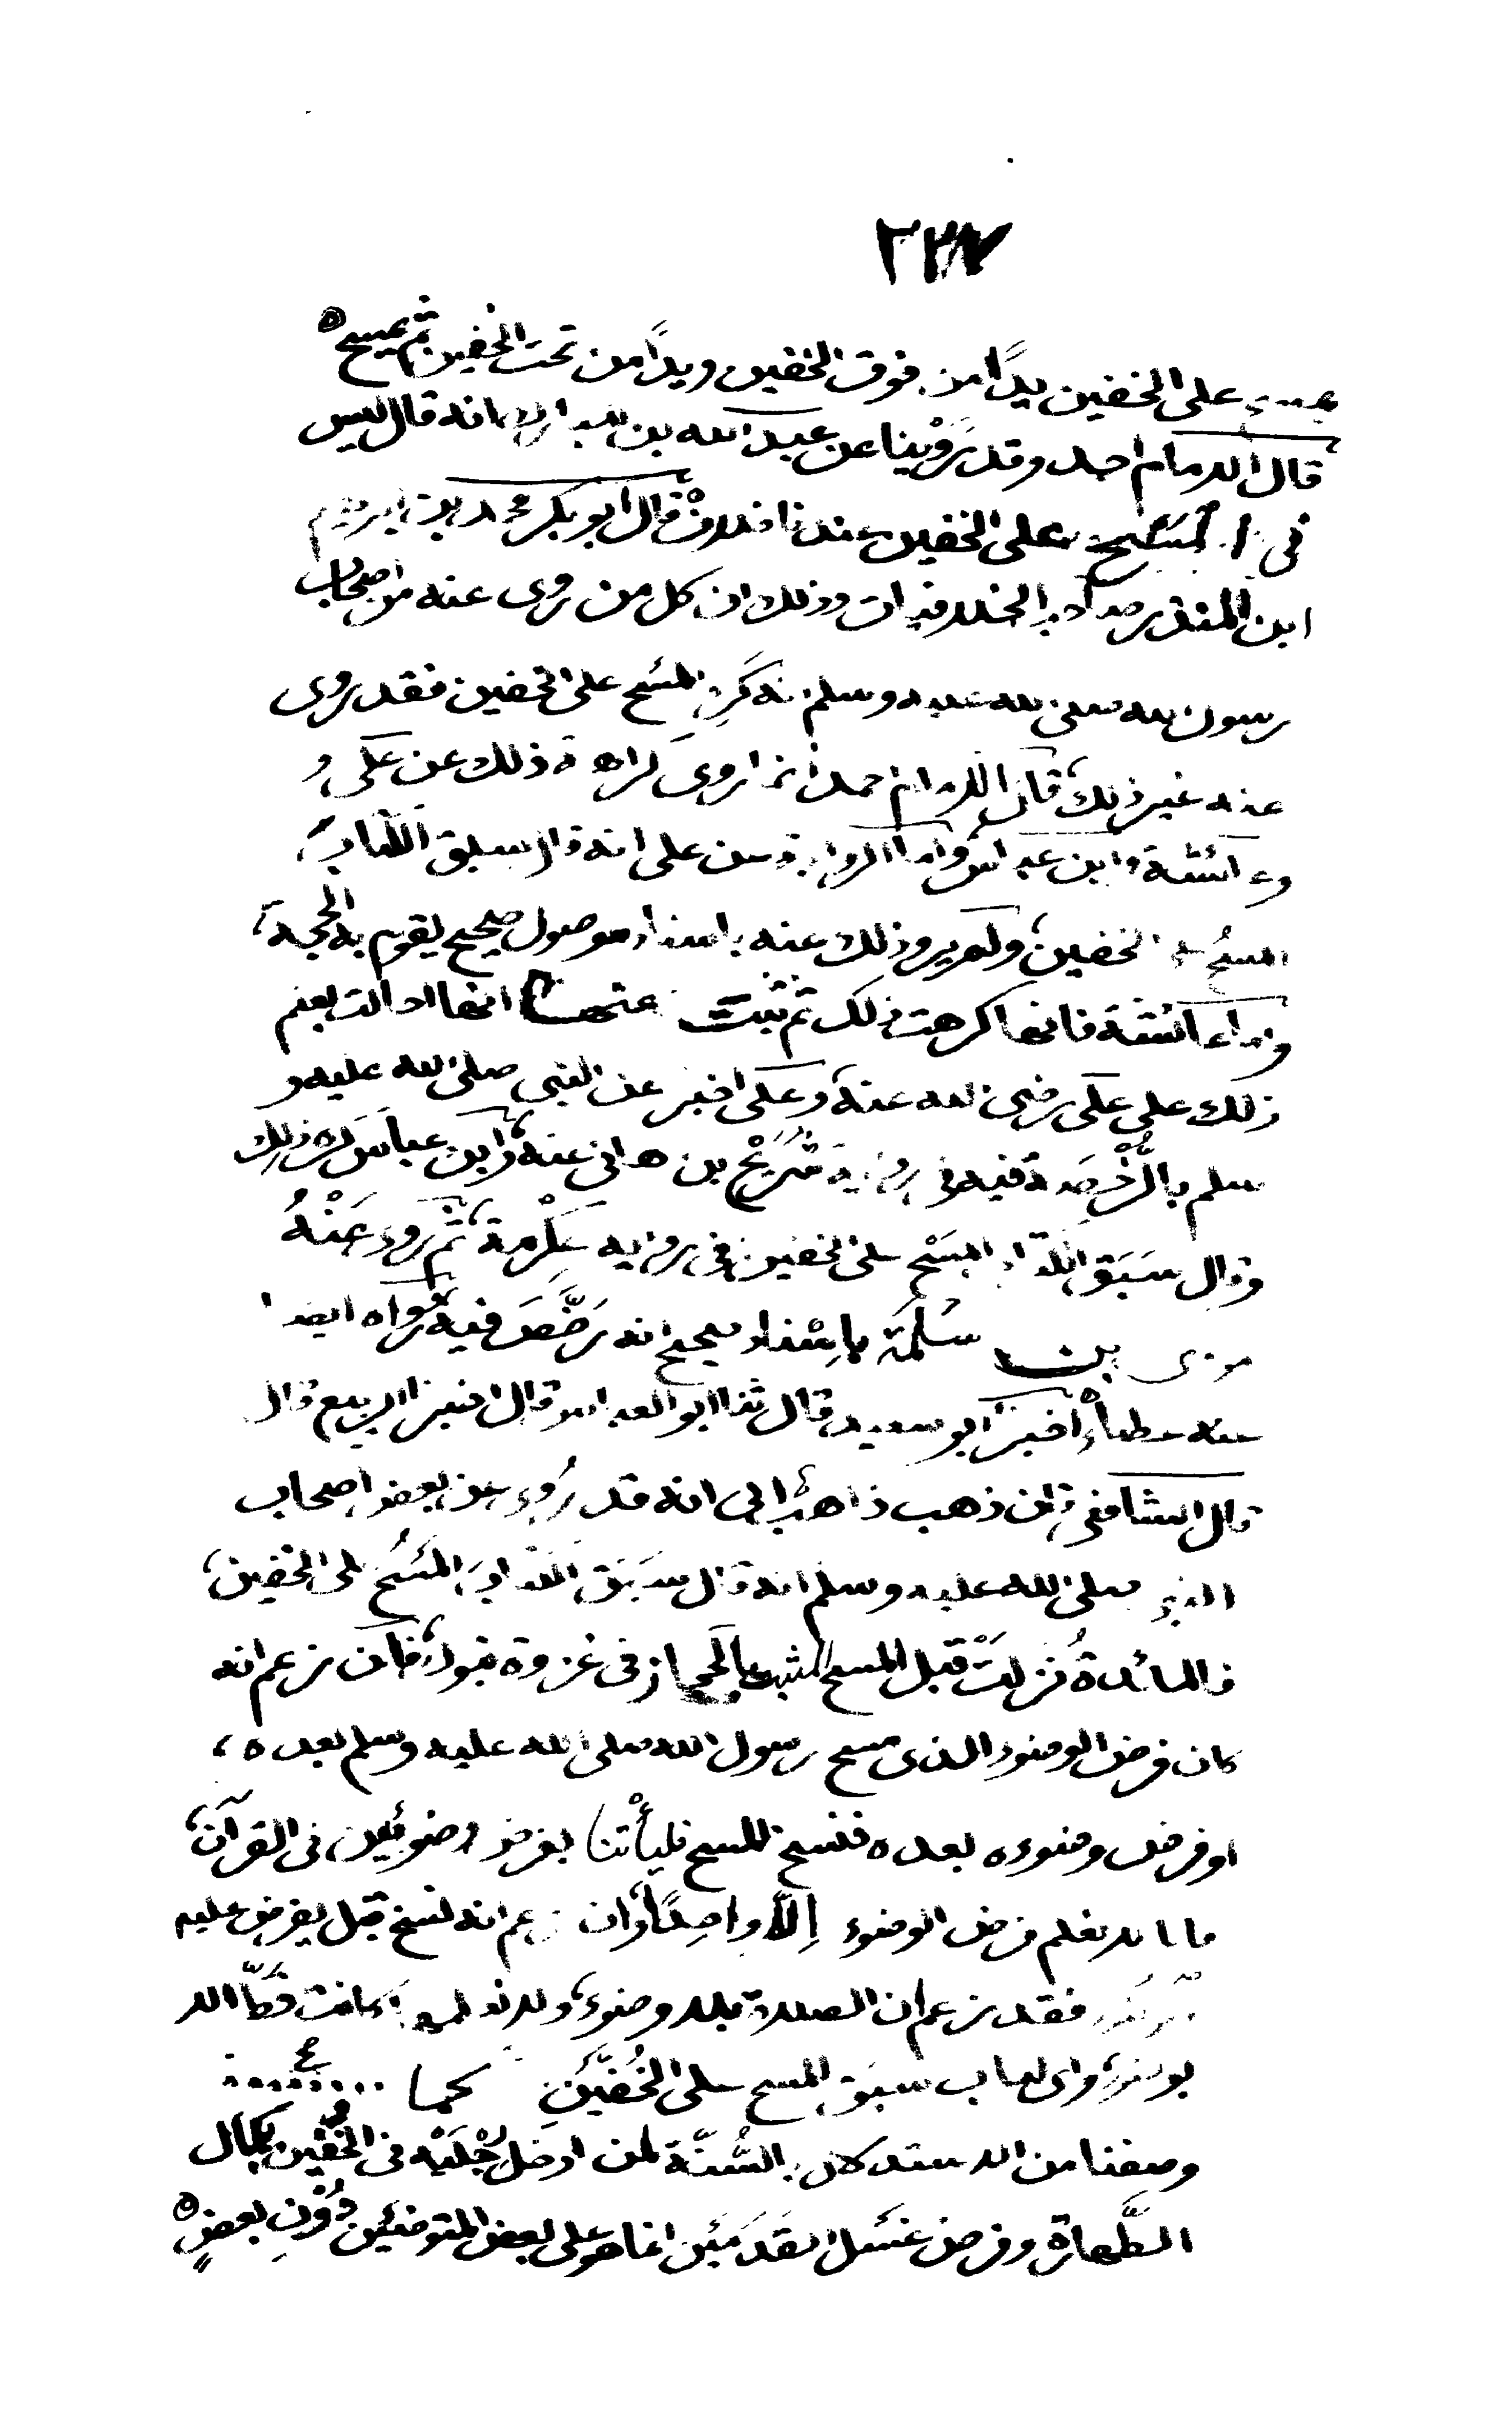 ٢٢٧
على الخفين يدًا من فوق الخفين ويدًا من تحت الخفين ثم يمسح ه
قال الامام احمد وقد رَوَيْنا عن عبد الله بن المبارك انه قال ليس
فى المسَّحِ على الخفين عندنا خلافٌ قال ابو بكر محمد بن ابرهيم
ابن المنذر صاحب الخلافيات وذلك ان كل من روى عنه من اصحاب
رسول الله صلى الله عليه وسلم انه كَرِه المَسْح على الخفين فقد روى
عنه غير ذلك، قال الامام احمد انما روى كراهة ذلك عن عَلَى و
وعائشة وابن عباس، واما الرواية عن على انه قال سبق الكتابُ
المسْحَ على الخفين، ولم يرو ذلك عنه باسناد موصول صحيح يقوم به الحجة،
واما عائشة فانها كرهت ذلك ثم ثبت عنها انها احالت بعلم
ذلك على عَلَى رضى الله عنه، وعَلَى اخبر عن النبى صلى الله عليه و
سلم بالرُّخْصَة فيه فى رواية شُرَيْح بن هانى عنه، وابن عباس كره ذلك
وقال سَبَق الكتاب المَسْح على الخفين فى رواية عِكْرِمة، ثم رَوى عَنْهُ
موسى بن سَلَمَة بِاِسْناد صحيح انه رَخَّصَ فيه، ورواه ايضا
عنه عطاءٌ اخبرنا ابو سعيد قال ثنا ابو العباس قال اخبرنا الربيع قال
قال الشافعى فان ذهب ذاهبٌ الى انه قد رُوى عن بعض اصحاب
النبى صلى الله عليه وسلم انه قال سَبَقَ الكتابُ المَسْحَ على الخفين،
فالمائدةُ نزلَتْ قبل المسح المثبت بالحجاز فى غزوة تبوك، فان زعم انه
كان فرض الوضوء الذى مسح رسول الله صلى الله عليه وسلم بعده،
او فرض وضوء بعده فنسخ المسح فليأْتنا بفرض وضوئين فى القرآن،
فانا لا نعلم فرض الوضوء اِلّا واحِدًا، وان زعم انه نسخ قبل يفرض عليه
فقد زعم ان الصلاة بلا وضوء، ولا نعلمها كانت قَطُّ الا
بوضوء، واى كتاب سبق المسح على الخُفَّيْنِ كما
وصفنا من الاستدلال بالسُّنَّة لمن ادخل رِجْلَيْه فى الخفين بكمال
الطَّهارة وفرض غَسْل القَدَمَيْن انما هو على بعض المتوضئين دُوْنَ بعضٍ ه